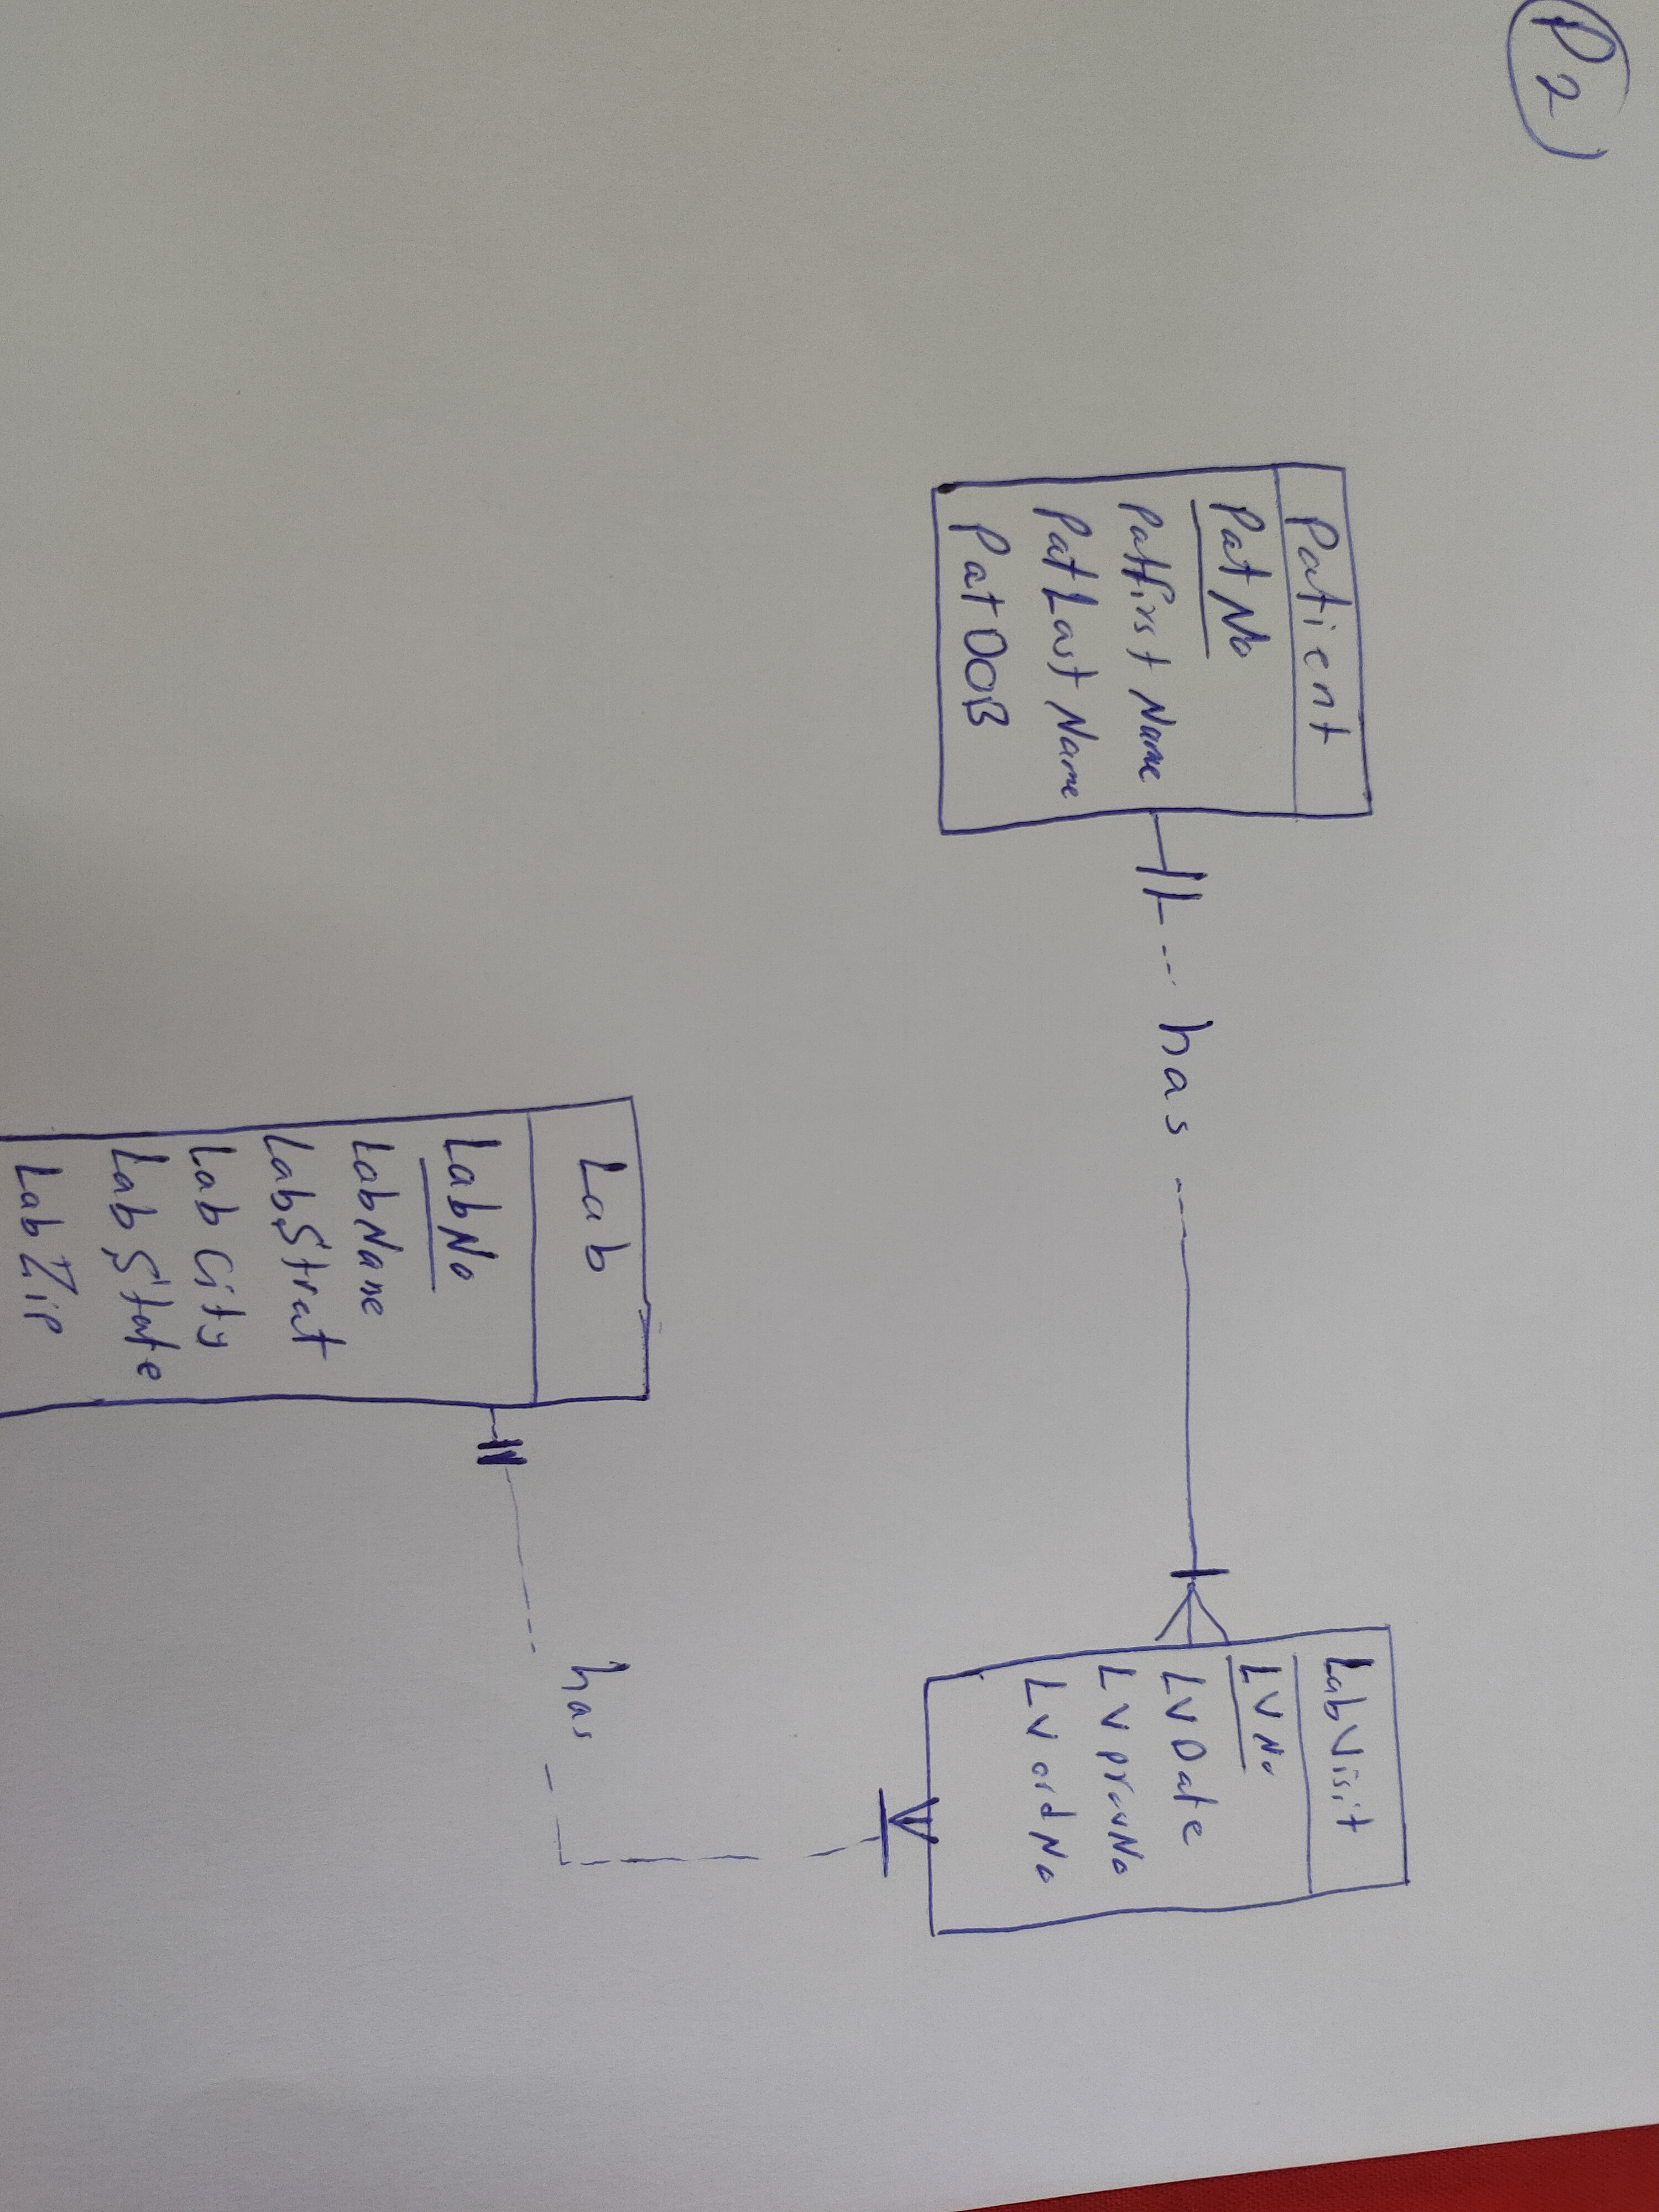 P2
Patient
PatNo
Patfirst Name
PatLast Name
PatDOB
has
LabVisit
LVNo
LVDate
LVprovNo
LVordNo
has
Lab
LabNo
LabName
LabStreet
LabCity
LabState
LabZip